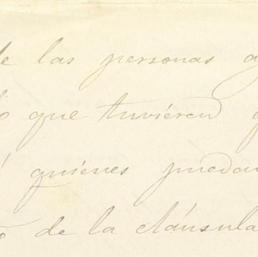 de las personas q
que tuvieren q
á quienes puedan
de la cláusula